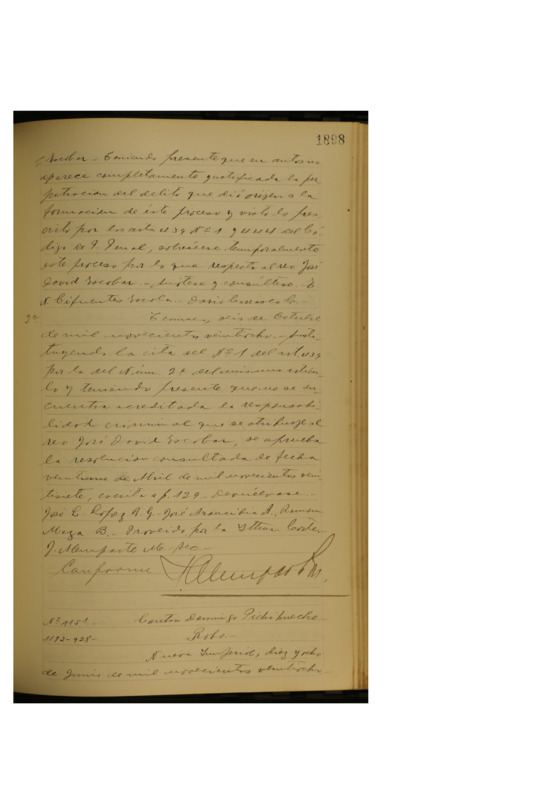 1898
Escobar. Teniendo presente que en autos no
aparece completamente justificada la per
petración del delito que dió origen a la
formación de éste proceso y visto lo pres
crito por los arts 439 Nº 1 y del Có
digo de P. Penal, sobreseese temporalmente
este proceso por lo que respecta al reo José
David Escobar. Anótese y consúltese. E.
N Cifuentes Dario
2ª Temuco, seis de Octubre
de mil novecientos veintiocho. Susti
tuyendo la cita del Nº 1 del art 439
por la del Núm. 2º del mismo artícu
lo y teniendo presente que no se en
cuentra acreditada la responsabi
lidad criminal que se atribuye al
reo José David Escobar, se aprueba
la resolución consultada de fecha
veintiuno de Abril de mil novecientos vein
tisiete, escrita a f. 129. Devuélvase.
José E. López R. G. José Arancibia A. Ramon
Maza B. Proveido por la Iltma Corte.
J. Montt sec.
Conforme
Contra Domingo
1192-928- Robo.
Nueva Imperial, diez y ocho
de Junio de mil novecientos veintiocho